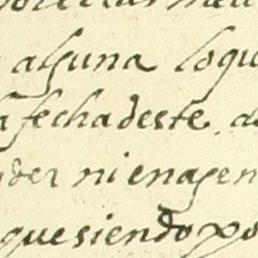 alguna loqu
fechadeste
der nienagen
quesiendo po